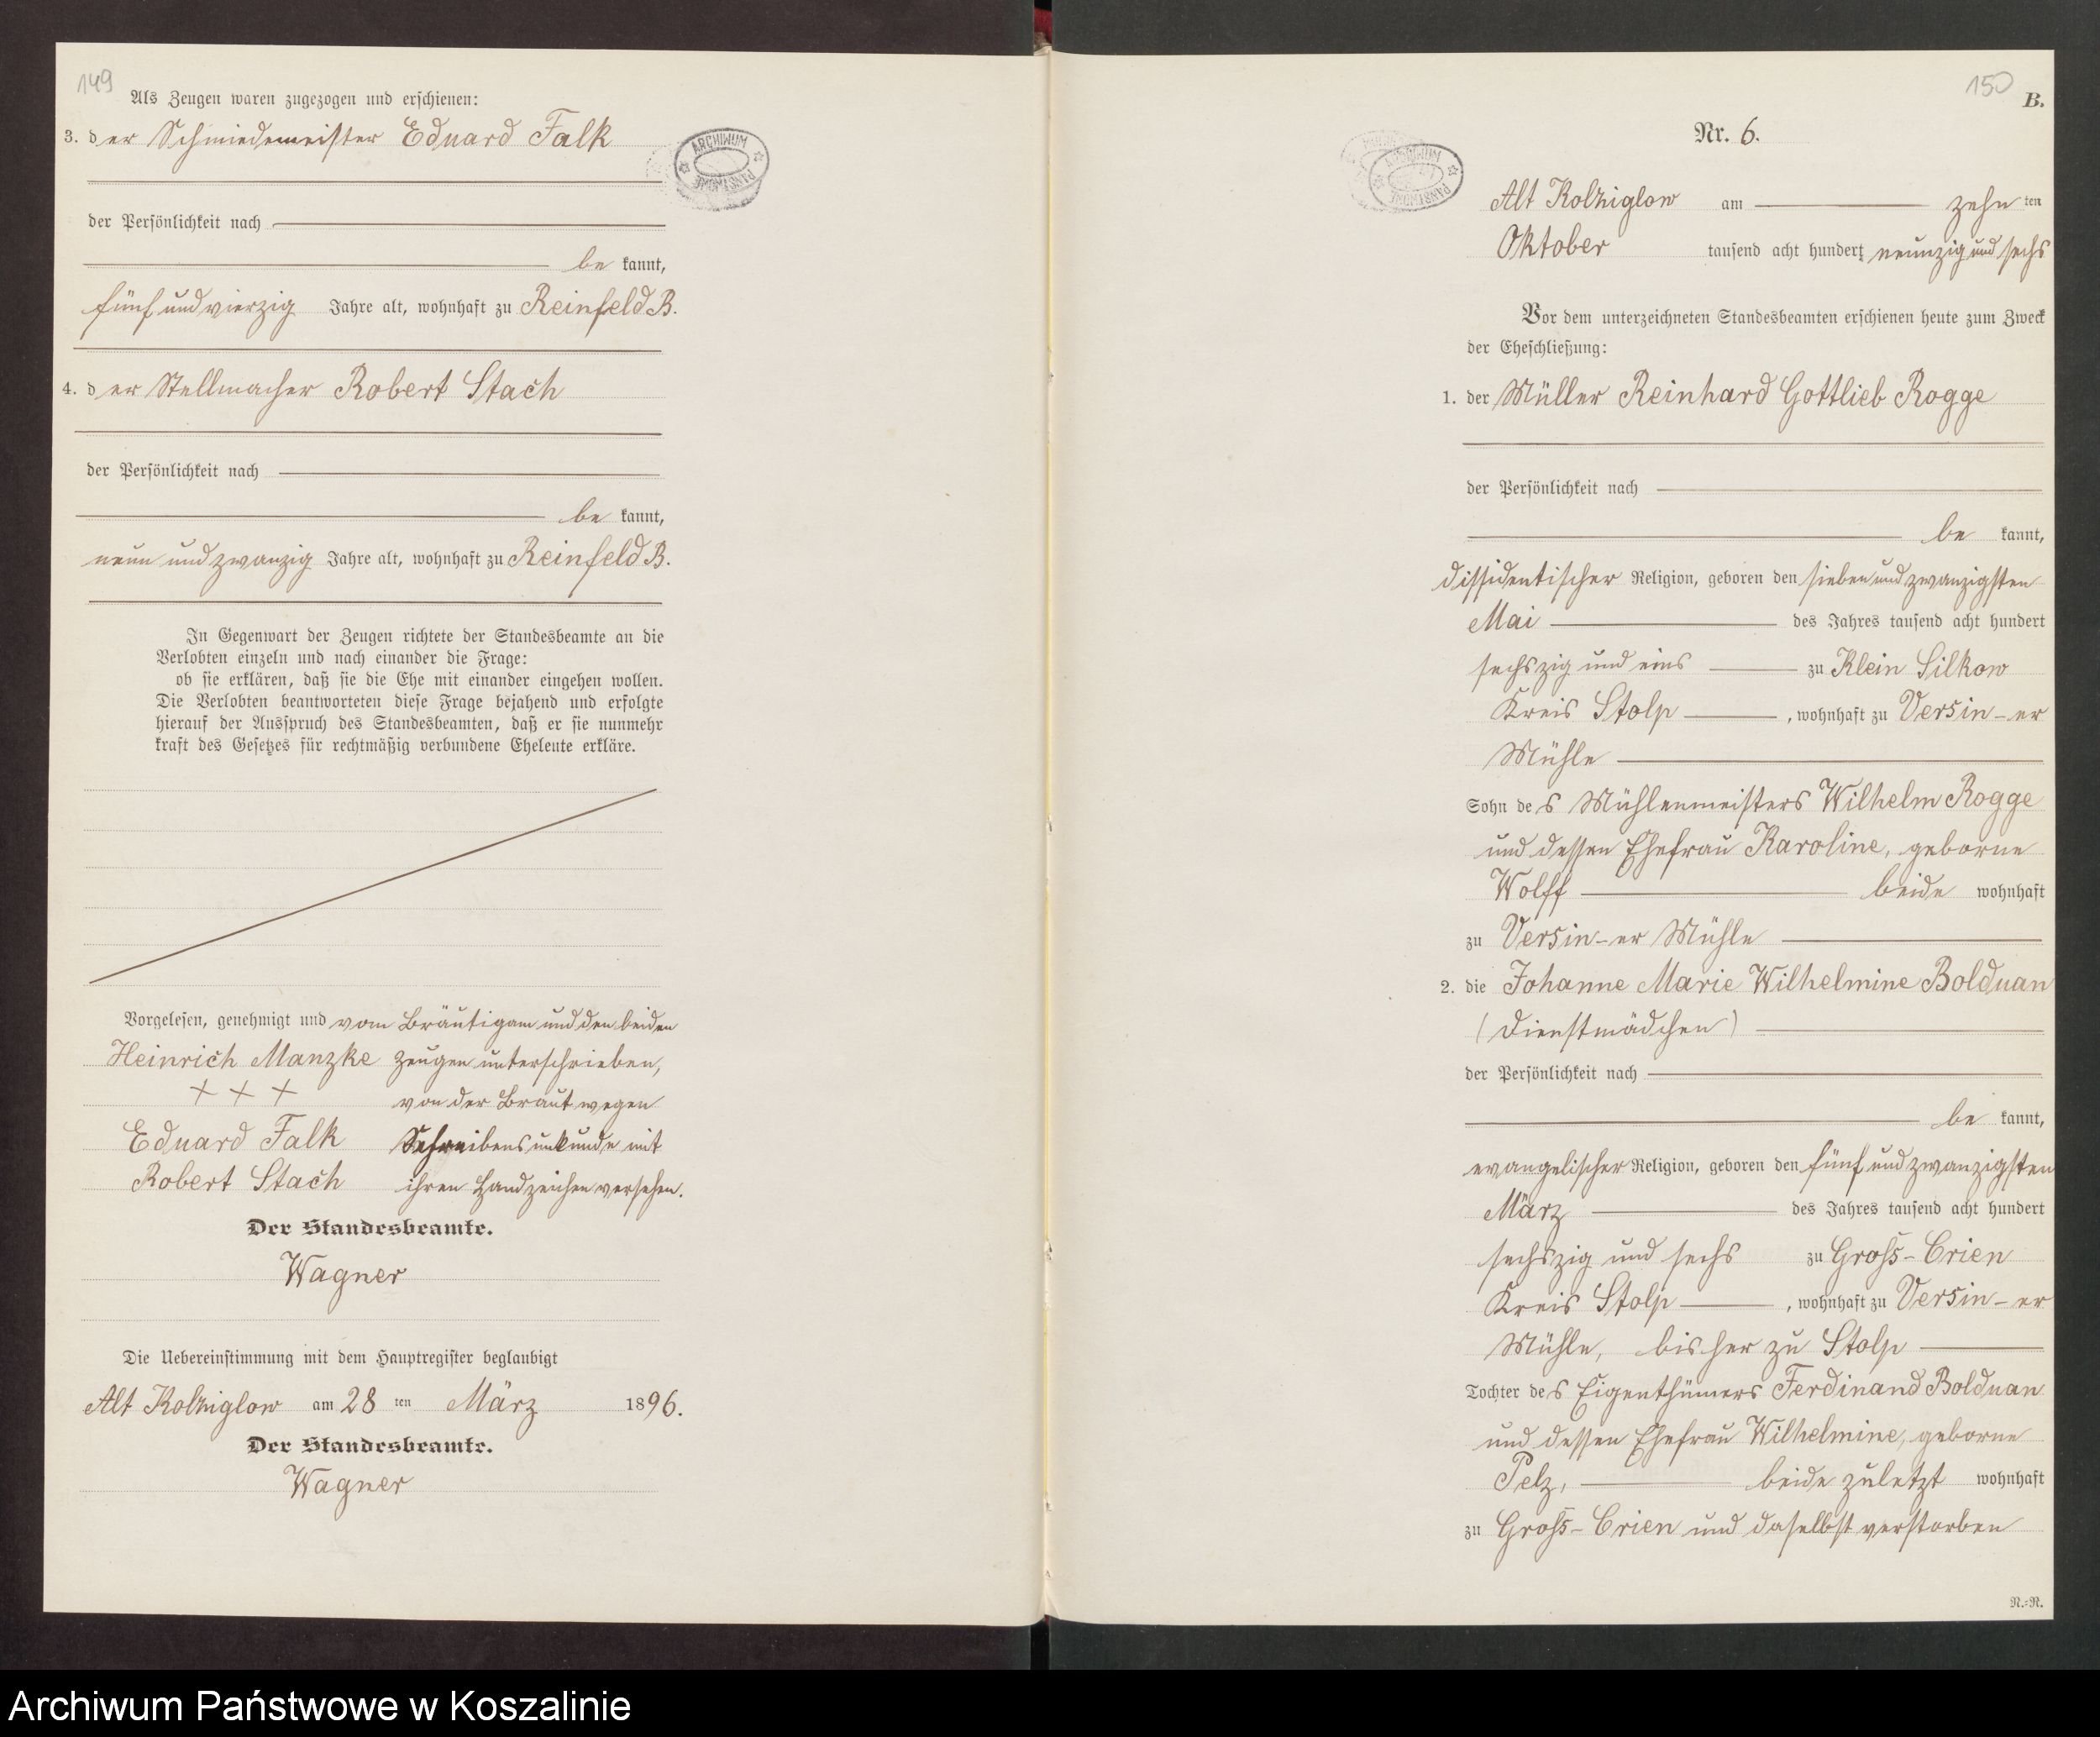 149
Als Zeugen waren zugezogen und erschienen:
3. der Schmiedemeister Eduard Falk
der Persönlichkeit nach
be kannt,
fünf und vierzig Jahre alt, wohnhaft zu Reinfeld B.
4. der Stellmacher Robert Stach
der Persönlichkeit nach
be kannt,
neun und zwanzig Jahre alt, wohnhaft zu Reinfeld B.
In Gegenwart der Zeugen richtete der Standesbeamte an die
Verlobten einzeln und nach einander die Frage:
ob sie erklären, daß sie die Ehe mit einander eingehen wollen.
Die Verlobten beantworteten diese Frage bejahend und erfolgte
hierauf der Ausspruch des Standesbeamten, daß er sie nunmehr
kraft des Gesetzes für rechtmäßig verbundene Eheleute erkläre.
Vorgelesen, genehmigt und vom Bräutigam und den beiden
Heinrich Manzke Zeugen unterschrieben,
+ + + von der Braut wegen
Eduard Falk Schreibensunkunde mit
Robert Stach ihren Handzeichen versehen.
Der Standesbeamte.
Wagner
Die Uebereinstimmung mit dem Hauptregister beglaubigt
Alt Kolziglow am 28 ten März 1896.
Der Standesbeamte.
Wagner
ARCHIWUM PAŃSTWOWE
150
B.
Nr. 6.
Alt Kolziglow am zehn ten
Oktober tausend acht hundert neunzig und sechs
Vor dem unterzeichneten Standesbeamten erschienen heute zum Zweck
der Eheschließung:
1. der Müller Reinhard Gottlieb Rogge
der Persönlichkeit nach
be kannt,
dissidentischer Religion, geboren den sieben und zwanzigsten
Mai des Jahres tausend acht hundert
sechszig und eins zu Klein Silkow
Kreis Stolp, wohnhaft zu Versin-er
Mühle
Sohn des Mühlenmeisters Wilhelm Rogge
und dessen Ehefrau Karoline, geborne
Wolff beide wohnhaft
zu Versin-er Mühle
2. die Johanne Marie Wilhelmine Bolduan
(Dienstmädchen)
der Persönlichkeit nach
be kannt,
evangelischer Religion, geboren den fünf und zwanzigsten
März des Jahres tausend acht hundert
sechszig und sechs zu Groß-Crien
Kreis Stolp, wohnhaft zu Versin-er
Mühle, bisher zu Stolp
Tochter des Eigenthümers Ferdinand Bolduan
und dessen Ehefrau Wilhelmine, geborne
Pelz, beide zuletzt wohnhaft
zu Groß-Crien und daselbst verstorben
N.-R.
ARCHIWUM PAŃSTWOWE
Archiwum Państwowe w Koszalinie